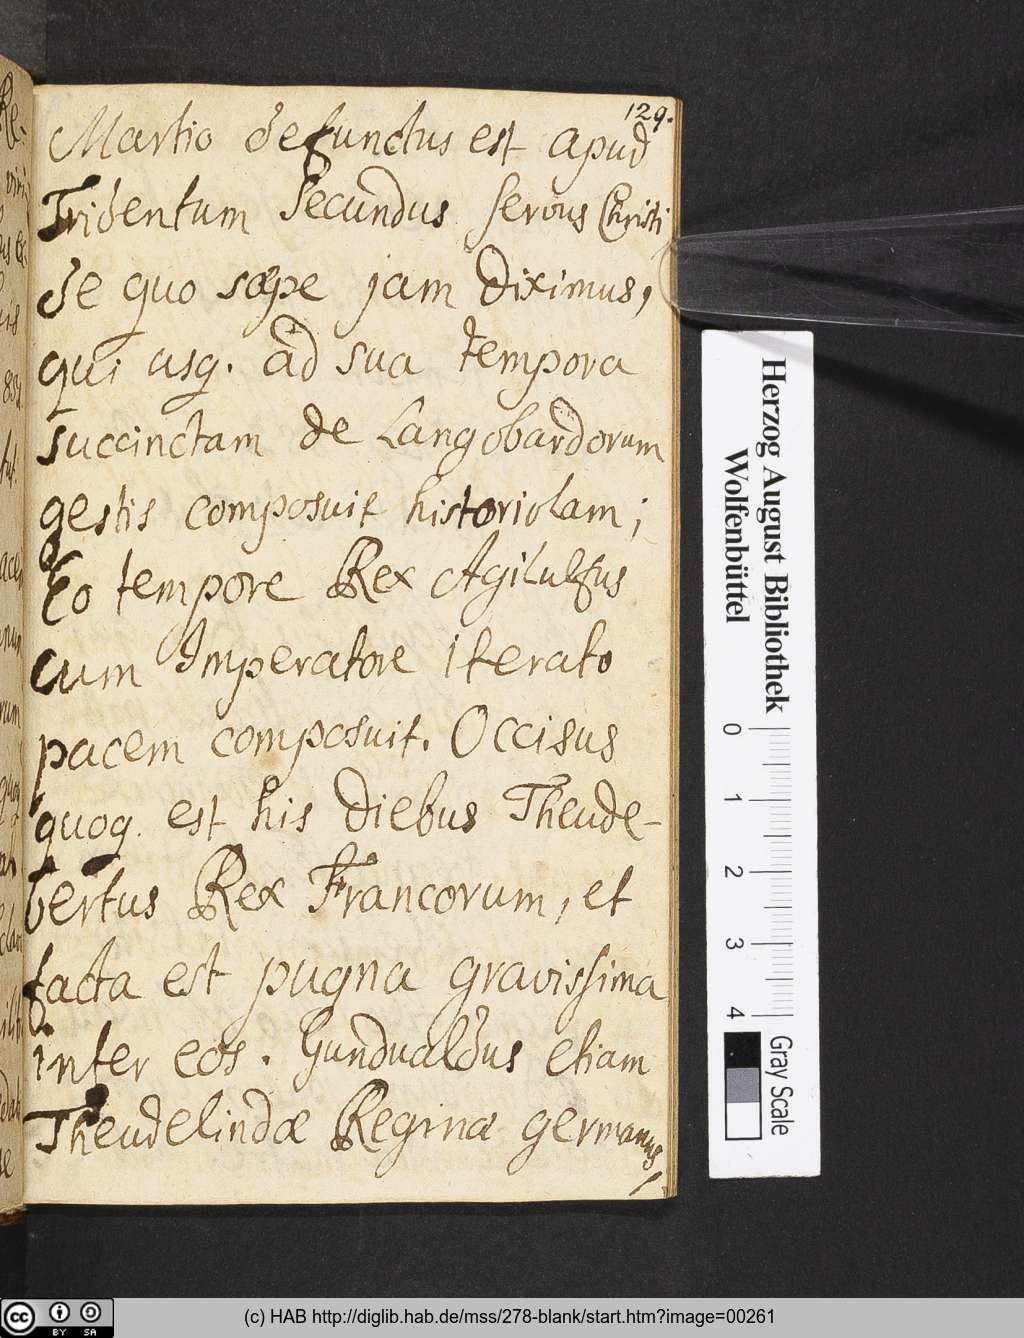 129.
Martio defunctus est apud
Tridentum Secundus servus Christi
de quo sæpe jam diximus,
qui usq. ad sua tempora
succinctam de Langobardorum
gestis composuit historiolam;
Eo tempore Rex Agilulfus
cum Imperatore iterato
pacem composuit. Occisus
quoq. est his diebus Theude-
bertus Rex Francorum, et
facta est pugna gravissima
inter eos. Gundualdus etiam
Theudelindæ Reginæ germanus,
Herzog August Bibliothek
Wolfenbüttel
0 1 2 3 4
Gray Scale
cc BY SA
(c) HAB http://diglib.hab.de/mss/278-blank/start.htm?image=00261